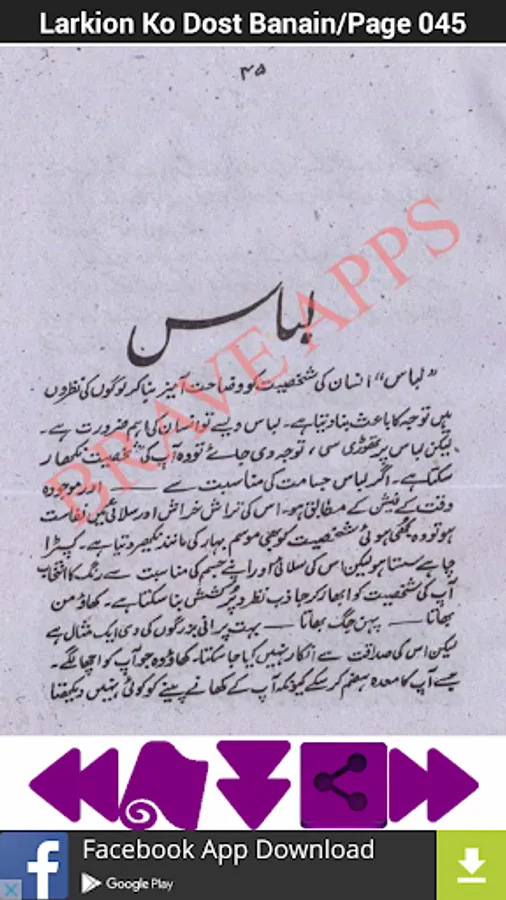 Larkion Ko Dost Banain/Page 045
۴۵
لباس
"لباس" انسان کی شخصیت کو وضاحت آمیز بنا کر لوگوں کی نظروں
میں توجہ کا باعث بنا دیتا ہے۔ لباس ویسے تو انسان کی اہم ضرورت ہے۔
لیکن لباس پر تھوڑی سی، توجہ دی جائے تو وہ آپ کی شخصیت نکھار
سکتا ہے۔ اگر لباس جسامت کی مناسبت سے —— اور موجودہ
وقت کے فیشن کے مطابق ہو۔ اس کی تراش خراش اور سلائی میں نفاست
ہو تو وہ بجھی ہوئی شخصیت کو بھی موسم بہار کی مانند نکھیر دیتا ہے۔ کپڑا
چاہے سستا ہو لیکن اس کی سلائی اور اپنے جسم کی مناسبت سے رنگ کا انتخاب
آپ کی شخصیت کو ابھار کر جاذب نظر و پرکشش بنا سکتا ہے۔ کھاؤ من
بھاتا —— پہن جگ بھاتا — بہت پرانی بزرگوں کی دی ایک مثال ہے
لیکن اس کی صداقت سے انکار نہیں کیا جا سکتا۔ کھاؤ وہ جو آپ کو اچھا لگے۔
جسے آپ کا معدہ ہضم کر سکے کیونکہ آپ کے کھانے پینے کو کوئی نہیں دیکھتا
BRAVE APPS
Facebook App Download
Google Play